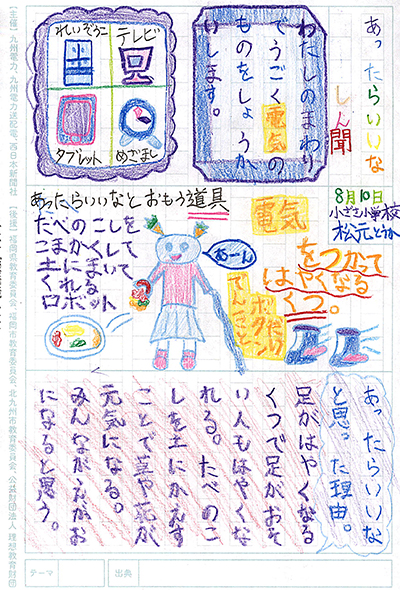 あったらいいな
しん聞
8月10日
小ざさ小学校
松元とうか
わたしのまわり
でうごく電気の
ものをしょうか
いします。
れいぞうこ
テレビ
タブレット
めざまし
電気
をつかって
はやくなる
くつ。
あったらいいなとおもう道具
たべのこしを
こまかくして
土にまいて
くれる
ロボット
あーん
あったらいいな
と思った理由。
足がはやくなる
くつで足がおそ
い人もはやくな
れる。たべのこ
しを土にかえす
ことで草や花が
元気になる。
みんながえがお
になると思う。
テーマ
出典
【主催】九州電力、九州電力送配電、西日本新聞社
【後援】福岡県教育委員会、福岡市教育委員会、北九州市教育委員会、公益財団法人 理想教育財団